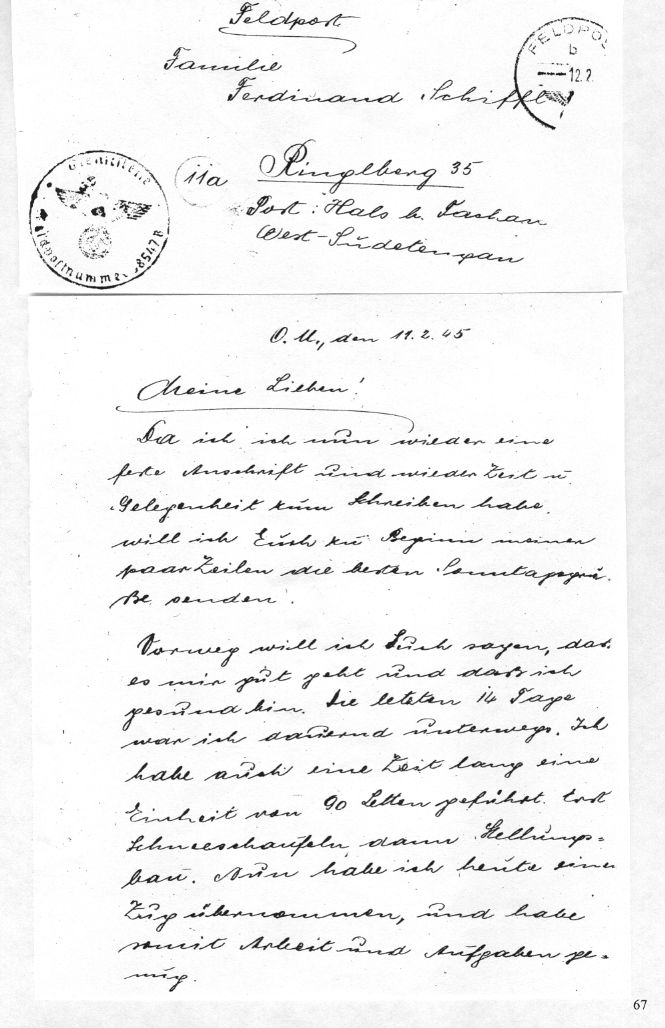 Feldpost
FELDPO
b
12.2.
Familie
Ferdinand Schiffl
Dienststelle
Feldpostnummer 38547B
11a
Ringlberg 35
Post: Hals b. Tachau
West-Sudetengau
O.U., den 11.2.45
Meine Lieben!
Da ich ich nun wieder eine
feste Anschrift und wieder Zeit u
Gelegenheit zum Schreiben habe,
will ich Euch zu Beginn meiner
paar Zeilen die besten Sonntagsgrü-
ße senden.
Vorweg will ich Euch sagen, das
es mir gut geht und daß ich
gesund bin. Die letzten 14 Tage
war ich dauernd unterwegs. Ich
habe auch eine Zeit lang eine
Einheit von 90 Letten geführt. Erst
Schneeschaufeln, dann Stellungs=
bau. Nun habe ich heute einen
Zug übernommen, und habe
somit Arbeit und Aufgaben ge=
nug.
67